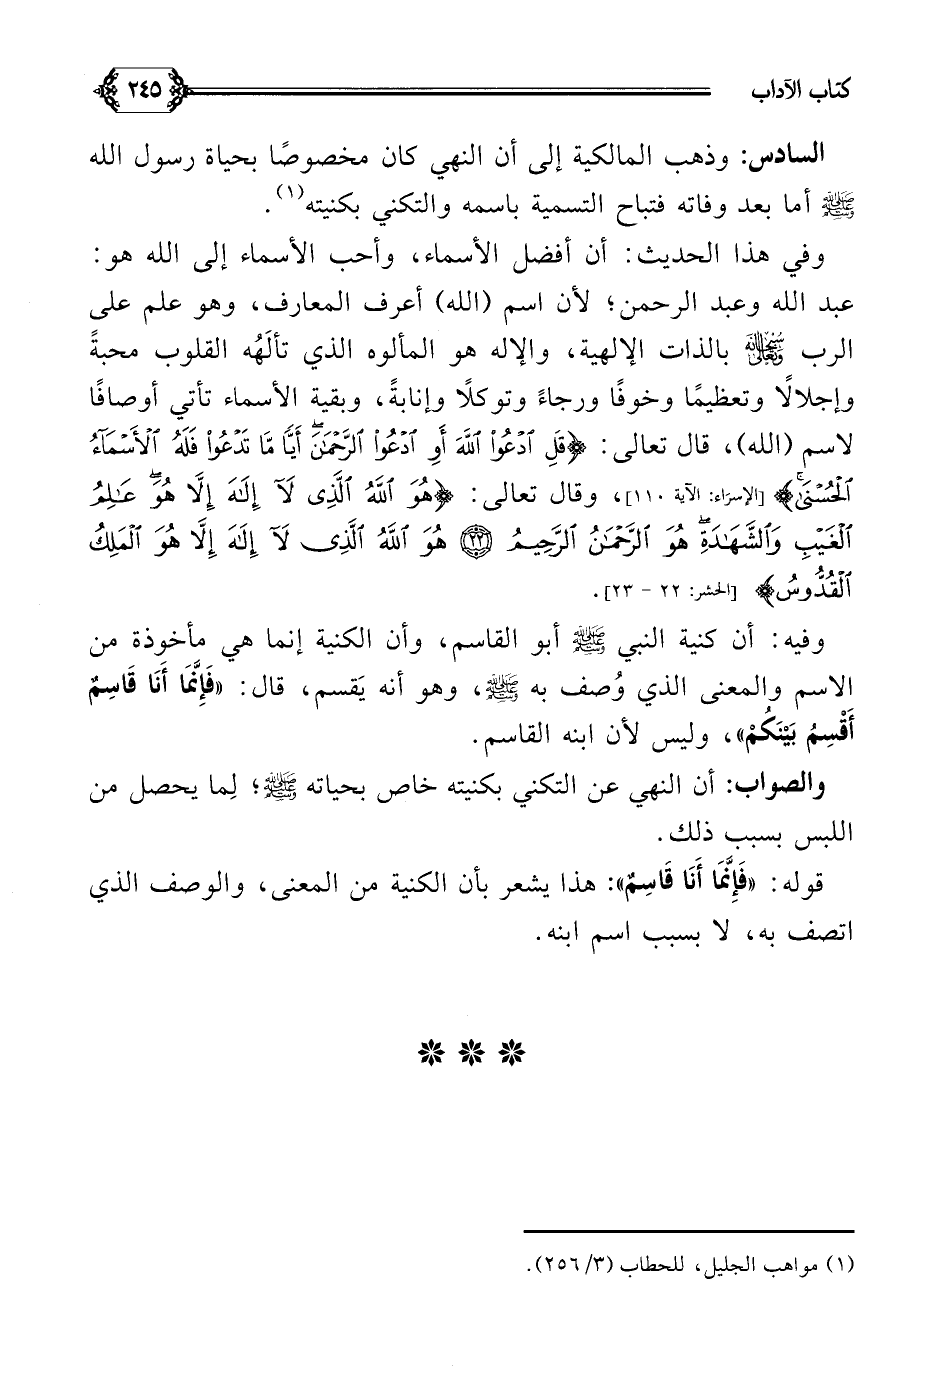 كتاب الآداب ٢٤٥
السادس: وذهب المالكية إلى أن النهي كان مخصوصًا بحياة رسول الله
ﷺ أما بعد وفاته فتباح التسمية باسمه والتكني بكنيته(١).
وفي هذا الحديث: أن أفضل الأسماء، وأحب الأسماء إلى الله هو:
عبد الله وعبد الرحمن؛ لأن اسم (الله) أعرف المعارف، وهو علم على
الرب سبحانه وتعالى بالذات الإلهية، والإله هو المألوه الذي تألَهُه القلوب محبةً
وإجلالًا وتعظيمًا وخوفًا ورجاءً وتوكلًا وإنابةً، وبقية الأسماء تأتي أوصافًا
لاسم (الله)، قال تعالى: ﴿قُلِ ٱدْعُوا۟ ٱللَّهَ أَوِ ٱدْعُوا۟ ٱلرَّحْمَـٰنَ ۖ أَيًّا مَّا تَدْعُوا۟ فَلَهُ ٱلْأَسْمَآءُ
ٱلْحُسْنَىٰ ۚ﴾ [الإسراء: الآية ١١٠]، وقال تعالى: ﴿هُوَ ٱللَّهُ ٱلَّذِى لَآ إِلَـٰهَ إِلَّا هُوَ ۖ عَـٰلِمُ
ٱلْغَيْبِ وَٱلشَّهَـٰدَةِ ۖ هُوَ ٱلرَّحْمَـٰنُ ٱلرَّحِيمُ ٢٢ هُوَ ٱللَّهُ ٱلَّذِى لَآ إِلَـٰهَ إِلَّا هُوَ ٱلْمَلِكُ
ٱلْقُدُّوسُ﴾ [الحشر: ٢٢ - ٢٣].
وفيه: أن كنية النبي ﷺ أبو القاسم، وأن الكنية إنما هي مأخوذة من
الاسم والمعنى الذي وُصف به ﷺ، وهو أنه يَقسم، قال: «فَإِنَّمَا أَنَا قَاسِمٌ
أَقْسِمُ بَيْنَكُمْ»، وليس لأن ابنه القاسم.
والصواب: أن النهي عن التكني بكنيته خاص بحياته ﷺ؛ لِما يحصل من
اللبس بسبب ذلك.
قوله: «فَإِنَّمَا أَنَا قَاسِمٌ»: هذا يشعر بأن الكنية من المعنى، والوصف الذي
اتصف به، لا بسبب اسم ابنه.
(١) مواهب الجليل، للحطاب (٣/ ٢٥٦).